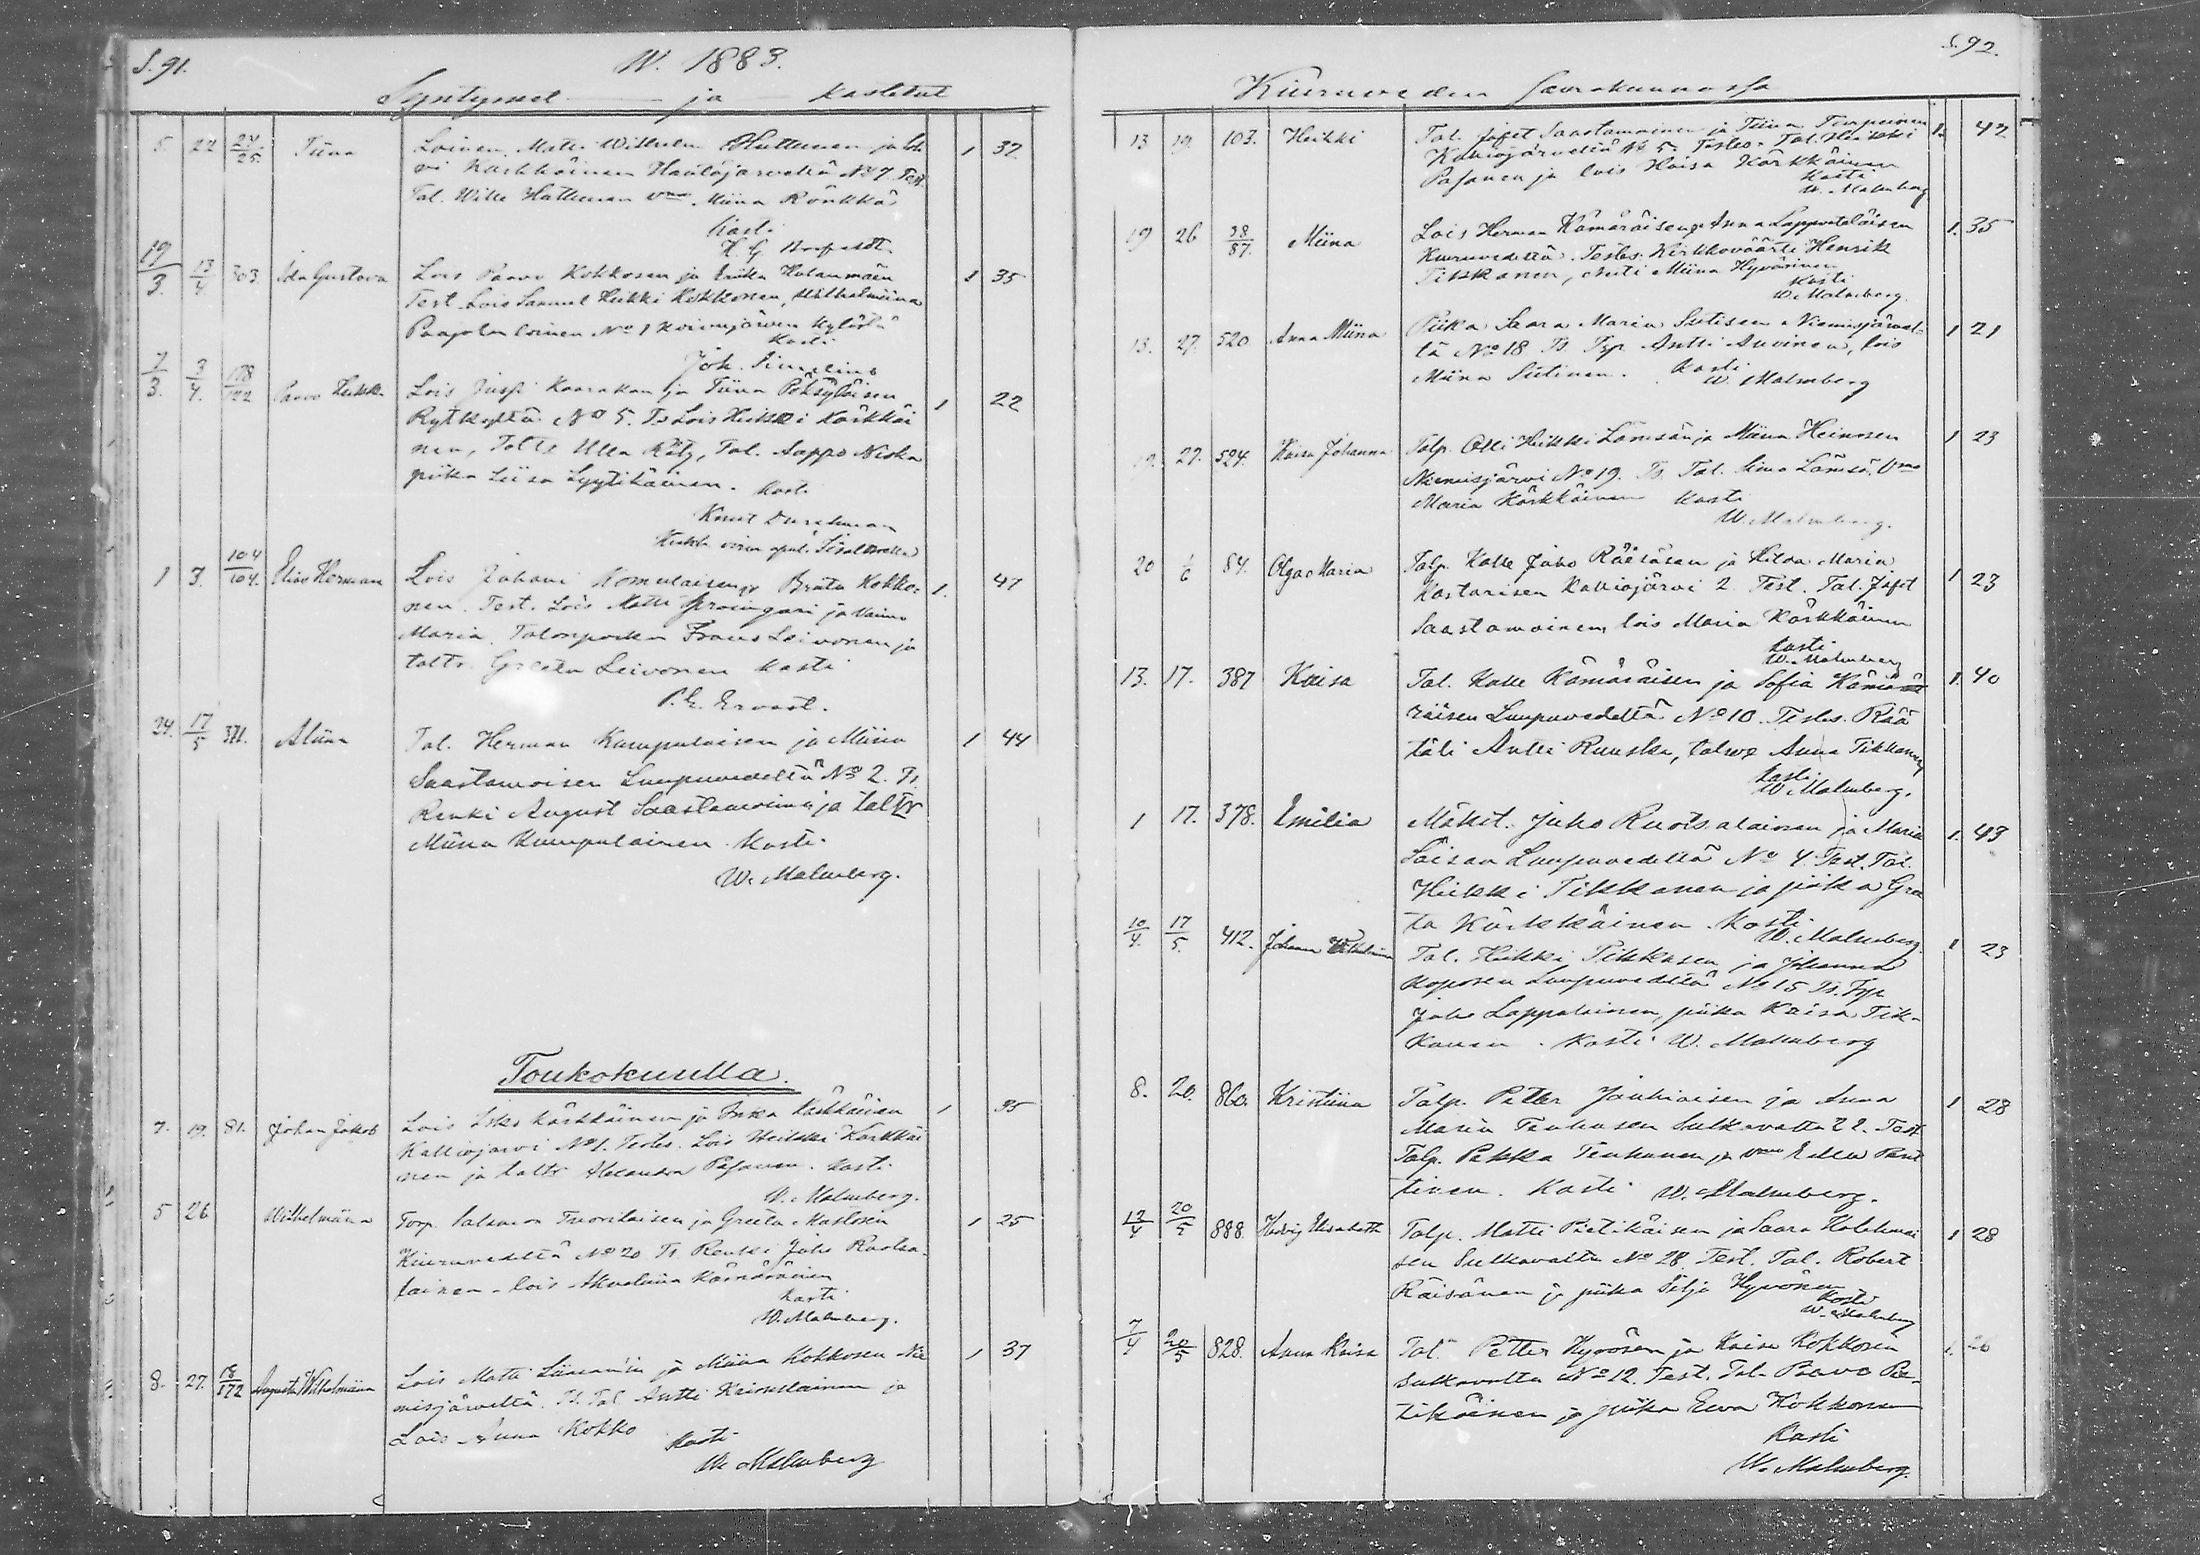 S. 91.
W. 1883.
Syntyneet ja kastetut
5 22 24/25 Tiina Loinen Matti Wilhelm Huttunen ja
Kärkkäinen Hautajärveltä No 7 Test.
Tal. Wille Huttunen vmo Miina Rönkkä 1 32
Kast.
K. G.
19/3 13/4 303 Ida Gustava Lois Paavo Kokkosen ja Erika 1 35
Test. Lois Samuel Heikki Kokkonen, Wilhelmiina
loinen No 1 Koivujärven kylästä
Kasti
Joh.
7/3. 3/4. 178/122 Paavo Heikki Lois Jussi ja Tiina Pöksyläisen 1 22
Rytkyltä No 5. Ts Lois Heikki Kärkkäi
nen, Taltr Ulla Räty, Tal. Aappo Niska
piika Liisa Lyytikäinen. Kasti
Knut Durchman
Kirkkoh. viran apul. Iisalmella
1 3. 104/104. Elias Herman Lois Juhani Komulaisen ja Briita Kokko- 1. 47
nen. Test. Lois Matti ja vaimo
Maria. Talonpoika Frans Leivonen ja
taltr. Greeta Leivonen kasti
P. E. Ervast.
24. 17/5 371. Aliina Tal. Herman Kumpulaisen ja Miina 1 44
Saastamoisen Luupuvedeltä No 2. Ts.
Renki August Saastamoinen ja taltr
Miina Kumpulainen. Kasti.
W. Malmberg.
Toukokuulla.
7. 19. 81. Johan Jakob Lois Kärkkäinen ja Kärkkäinen 1 35
Kalliojärvi No 1. Testes. Lois Heikki Kärkkäi
nen ja taltr Alexandra Pasanen. Kasti.
W. Malmberg.
5 26 Wilhelmiina Torp. Salomon Tuorilaisen ja Greeta Mustosen 1 25
Kiuruvedeltä No 20 Ts. Renki Juho Ruotsa-
lainen - lois Akuliina Kämäräinen
Kasti
W. Malmberg.
8. 27. 18/172 Augusta Wilhelmiina Lois Matti ja Miina Kokkosen Nie 1 37
misjärveltä. Ts. Tal. Antti ja
Lois Anna Kokko Kasti
W. Malmberg
S. 92.
Kiuruveden Seurakunnassa
13 19. 103. Heikki Tal. Jafet Saastamoinen ja Tiina Turpeinen 1. 42
Kalliojärveltä No 5. Testes. Tal. Heikki
Pasanen ja lois Kaisa Kärkkäinen
Kasti
W. Malmberg
19 26 38/87. Miina Lois Herman Kämäräisen ja Anna Lappveteläisen 1. 35
Kiuruvedeltä. Testes. Kirkkoväärti Henrik
Tikkanen, neiti Miina Hyvärinen
Kasti
W. Malmberg.
13. 27. 520 Anna Miina Piika Saara Maria Siitisen Niemisjärvel- 1 21
tä No 18 Ts. Trp. Antti Auvinen, lois
Miina Siitinen. Kasti
W. Malmberg
27. 524. Kaisa Johanna Talp. Olli Heikki Lämsän ja Miina Heinosen 1 23
Niemisjärvi No 19. Ts. Tal. Simo Lämsä, Vmo
Maria Kärkkäinen Kasti
W. Malmberg.
20 1/6 84. Olga Maria Talp. Kalle Juho Räisäsen ja Hilda Maria 1 23
Kastarisen Kalliojärvi 2. Test. Tal. Jafet
Saastamoinen, lois Maria Kärkkäinen
Kasti
W. Malmberg
13. 17. 387 Kaisa Tal. Kalle Kämäräisen ja Sofia Kämä 1. 40
räisen Luupuvedeltä No 10. Testes. Rää
täli Antti Ruuska, Anna Tikkanen
Kasti.
W. Malmberg.
1 17. 378. Emilia Mäkit. Juho Ruotsalainen ja Maria 1. 43
Luupuvedeltä No 4. Test. Tal.
Heikki Tikkanen ja piika Gree
ta Kärkkäinen. Kasti.
W. Malmberg.
10/4. 17/5. 412. Johanna Wilhelmiina Tal. Heikki Tikkasen ja Johanna 1 23
Koposen Luupuvedeltä No 15 Ts. Trp
Juho Lappalainen, piika Kaisa Tik-
kanen. Kasti W. Malmberg
8. 20. 860. Kristiina Talp. Petter Jauhiaisen ja Anna 1 28
Maria Tenhusen Sulkavalta 22. Test.
Talp. Pekka Tenhunen ja vmo Pant
tinen. Kasti W. Malmberg.
12/4 20/5 888. Hedvig Elisabeth Talp. Matti Pietikäisen ja Saara Kolehmai 1 28
sen Sulkavalta No 28. Test. Tal. Robert
Räisänen ja piika Silja Hyvönen
Kasti
W. Malmberg
7/4 20/5 828. Anna Kaisa Tal. Petter Hyvösen ja Kaisa Kokkosen 1. 26
Sulkavalta No 12. Test. Tal. Paavo Pie-
tikäinen ja piika Eeva Kokkonen
Kasti
W. Malmberg.